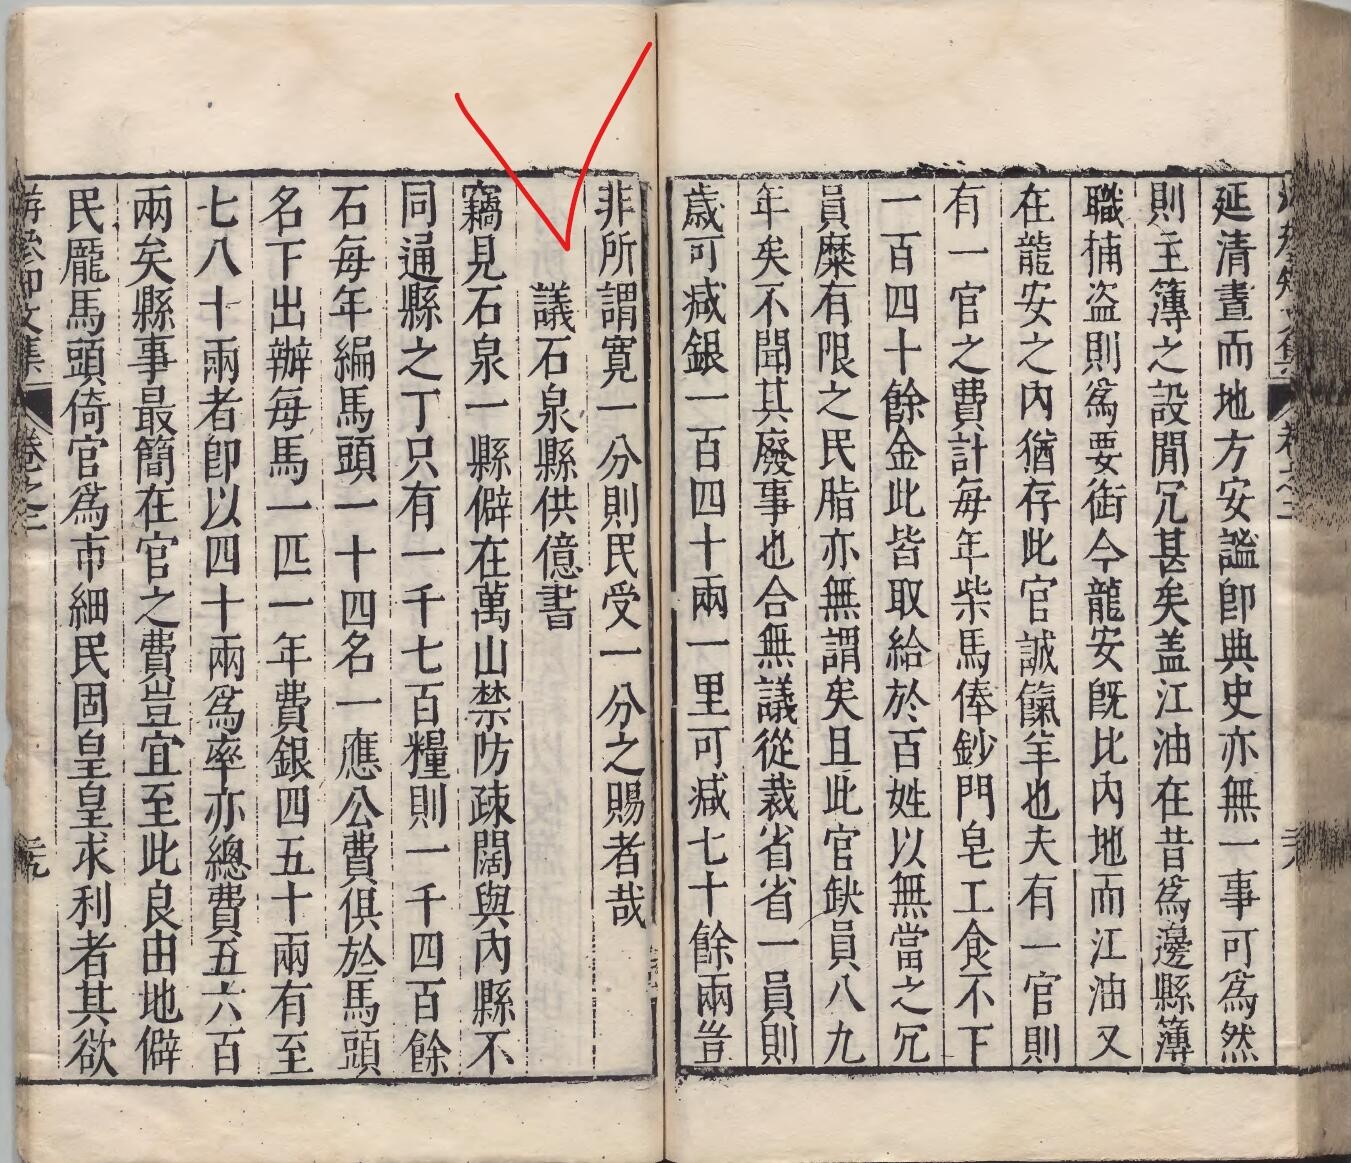 延清晝而地方安謐卽典史亦無一事可為然
則主簿之設閒冗甚矣盖江油在昔為邊縣簿
職捕盜則為要銜今龍安旣比內地而江油又
在龍安之內猶存此官誠餼羊也夫有一官則
有一官之費計每年柴馬俸鈔門皂工食不下
一百四十餘金此皆取給於百姓以無當之冗
員糜有限之民脂亦無謂矣且此官缺員八九
年矣不聞其廢事也合無議從裁省省一員則
歲可减銀一百四十兩一里可减七十餘兩豈
非所謂寬一分則民受一分之賜者哉
議石泉縣供億書
竊見石泉一縣僻在萬山禁防疎闊與內縣不
同通縣之丁只有一千七百糧則一千四百餘
石每年編馬頭一十四名一應公費俱於馬頭
名下出辦每馬一匹一年費銀四五十兩有至
七八十兩者卽以四十兩為率亦總費五六百
兩矣縣事最簡在官之費豈宜至此良由地僻
民厖馬頭倚官為市細民固皇皇求利者其欲
卷之三
二十九